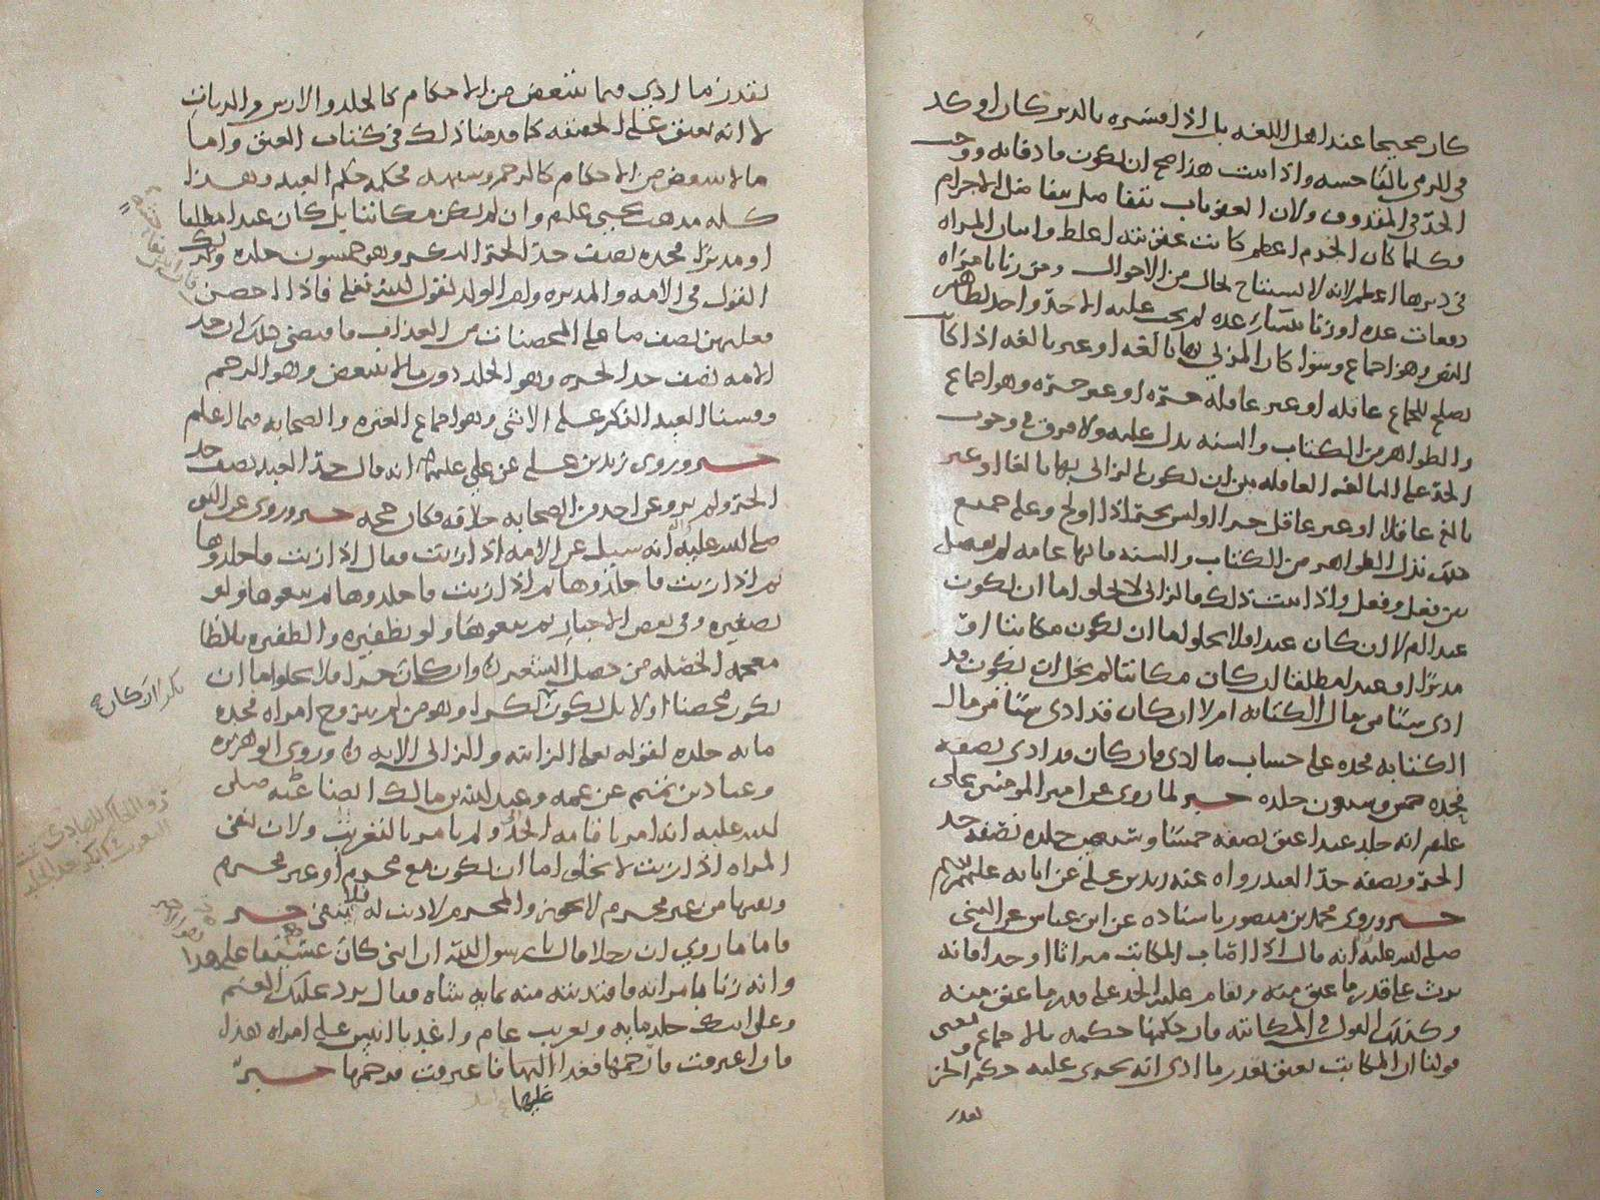 كان صحيحا عند اهل اللغة بل اذا فسره بالدبر كان اوكد
في الرمي بالفاحشه واذا ثبت هذا صح ان يكون ما دفاته ووجب
الحد في المقذوف ولان العقوبات تتفاضل بتفاضل الاجرام
فكلما كان الجرم اعظم كانت عقوبته اغلظ واتيان المراه
في دبرها اعظم لانه لا يستباح بحال من الاحوال ومن زنا بامراه
دفعات عده او زنا بنساء عده لم يجب عليه الا حد واحد لظاهر
النص وهذا اجماع وسوا كان المزني بها بالغه او غير بالغه اذا كان
يصلح للجماع عاقله او غير عاقله حره او غير حره وهو اجماع
والظواهر من الكتاب والسنه يدل عليه ولا فرق في وجوب
الحد على البالغه العاقله بين ان يكون الزاني بها بالغا او غير
بالغ عاقلا او غير عاقل حرا اوليس بحر اذا اولج وعلى جميع
ذلك تدل الظواهر من الكتاب والسنه فانها عامه لم يفصل
بين فعل وفعل واذا ثبت ذلك فالزاني لا يخلو اما ان يكون
عبدا ام لا ان كان عبدا فلا يخلو اما ان يكون مكاتبا او
مدبرا او عبدا مطلقا ان كان مكاتبا لم يخل ان يكون قد
ادى شيئا من مال الكتابه ام لا ان كان قد ادى شيئا من مال
الكتابه فحده على حساب ما ادى فان كان قد ادى نصفه
فحده خمس وسبعون جلده خبر لما روي عن امير المومنين علي
عليه انه جلد عبدا عتق نصفه خمسا وسبعين جلده نصفه حد
الحر ونصفه حد العبد رواه عنه زيد بن علي عن ابائه عليهم
خبر وروى محمد بن منصور باسناده عن ابن عباس عن النبي
صلى الله عليه انه قال اذا اصاب المكاتب ميراثا او حدا فانه
يرث على قدر ما عتق منه ويقام عليه الحد على قدر ما عتق منه
وكذلك القول في المكاتبه فان حكمها حكمه بالاجماع
قولنا ان المكاتب يعتق بقدر ما ادى انه يجري عليه حكم الحر
بقدر
بقدر ما ادى فيما يتبعض من الاحكام كالجلد والارش والديات
لا انه يعتق على الحقيقه كما قدمنا ذلك في كتاب العتق واما
ما لا يتبعض من الاحكام كالرجم فحكمه حكم العبد وهذا
كله مذهب يحيى عليه وان لم يكن مكاتبا بل كان عبدا مطلقا
او مدبرا فحده نصف حد الحر البكر وهو خمسون جلده وكذلك
القول في الامه والمدبره وام الولد لقول الله تعلى فاذا احصن
فعليهن نصف ما على المحصنات من العذاب فاقتضى ذلك ان حد
الامه نصف حد الحره وهو الجلد دون ما لا يتبعض وهو الرجم
وقسنا العبد الذكر على الانثى وهو اجماع العتره والصحابه فيما اعلم
خبر وروى زيد بن علي عن علي عليهم انه قال حد العبد نصف حد
الحر ولم يرو عن احد من الصحابه خلافه فكان حجه خبر وروي عن النبي
صلى الله عليه انه سيل عن الامه اذا زنت فقال اذا زنت فاجلدوها
ثم اذا زنت فاجلدوها ثم اذا زنت فاجلدوها ثم بيعوها ولو
بضفيره وفي بعض الاخبار ثم بيعوها ولو بظفيره والظفيره بالظا
معجمه الخصله من خصل الشعر وان كان حرا فلا يخلو اما ان
يكون محصنا او لا بل يكون بكرا وهو من لم يتزوج امراه فحده
مايه جلده لقوله تعلى الزانيه والزاني الايه وروى ابو هريره
وعباد بن تميم عن عمه وعبد الله بن مالك ايضا عنه صلى
الله عليه انه امر باقامه الحد ولم يامر بالتغريب ولان نفي
المراه اذا زنت لا يخلو اما ان يكون مع محرم او غير محرم
ونفيها من غير محرم لا يجوز والمحرم لا ذنب له فلا ينفى خبر
فاما ما روي ان رجلا قال يا رسول الله ان ابني كان عسيفا على هذا
وانه زنا بامراته فافتديته منه بمايه شاه فقال يرد عليك الغنم
وعلى ابنك جلد مايه وتغريب عام واغد يا انيس على امراه هذا
فان اعترفت فارجمها فغدا اليها فاعترفت فرجمها خبر
عليها
بكرا ان كان